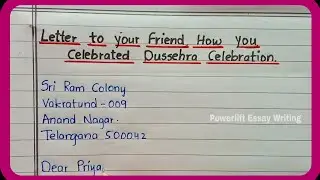 Letter to your Friend How you
Celebrated Dussehra Celebration.
Sri Ram Colony
Vakratund-009
Anand Nagar.
Telangana 500042
Powerlift Essay Writing
Dear Priya,